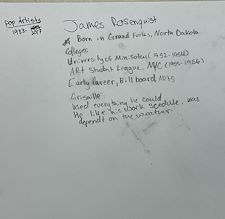 pop Artists
James Rosenquist
Born in Grand Forks, North Dakota
Colleges
University of Minnesota (1952-1954)
Art Student League, NYC (1955-1956)
Early Career, Billboard Ads
Grisaille:
Used everything he could
He like his work schedule, was
dependt on the weather